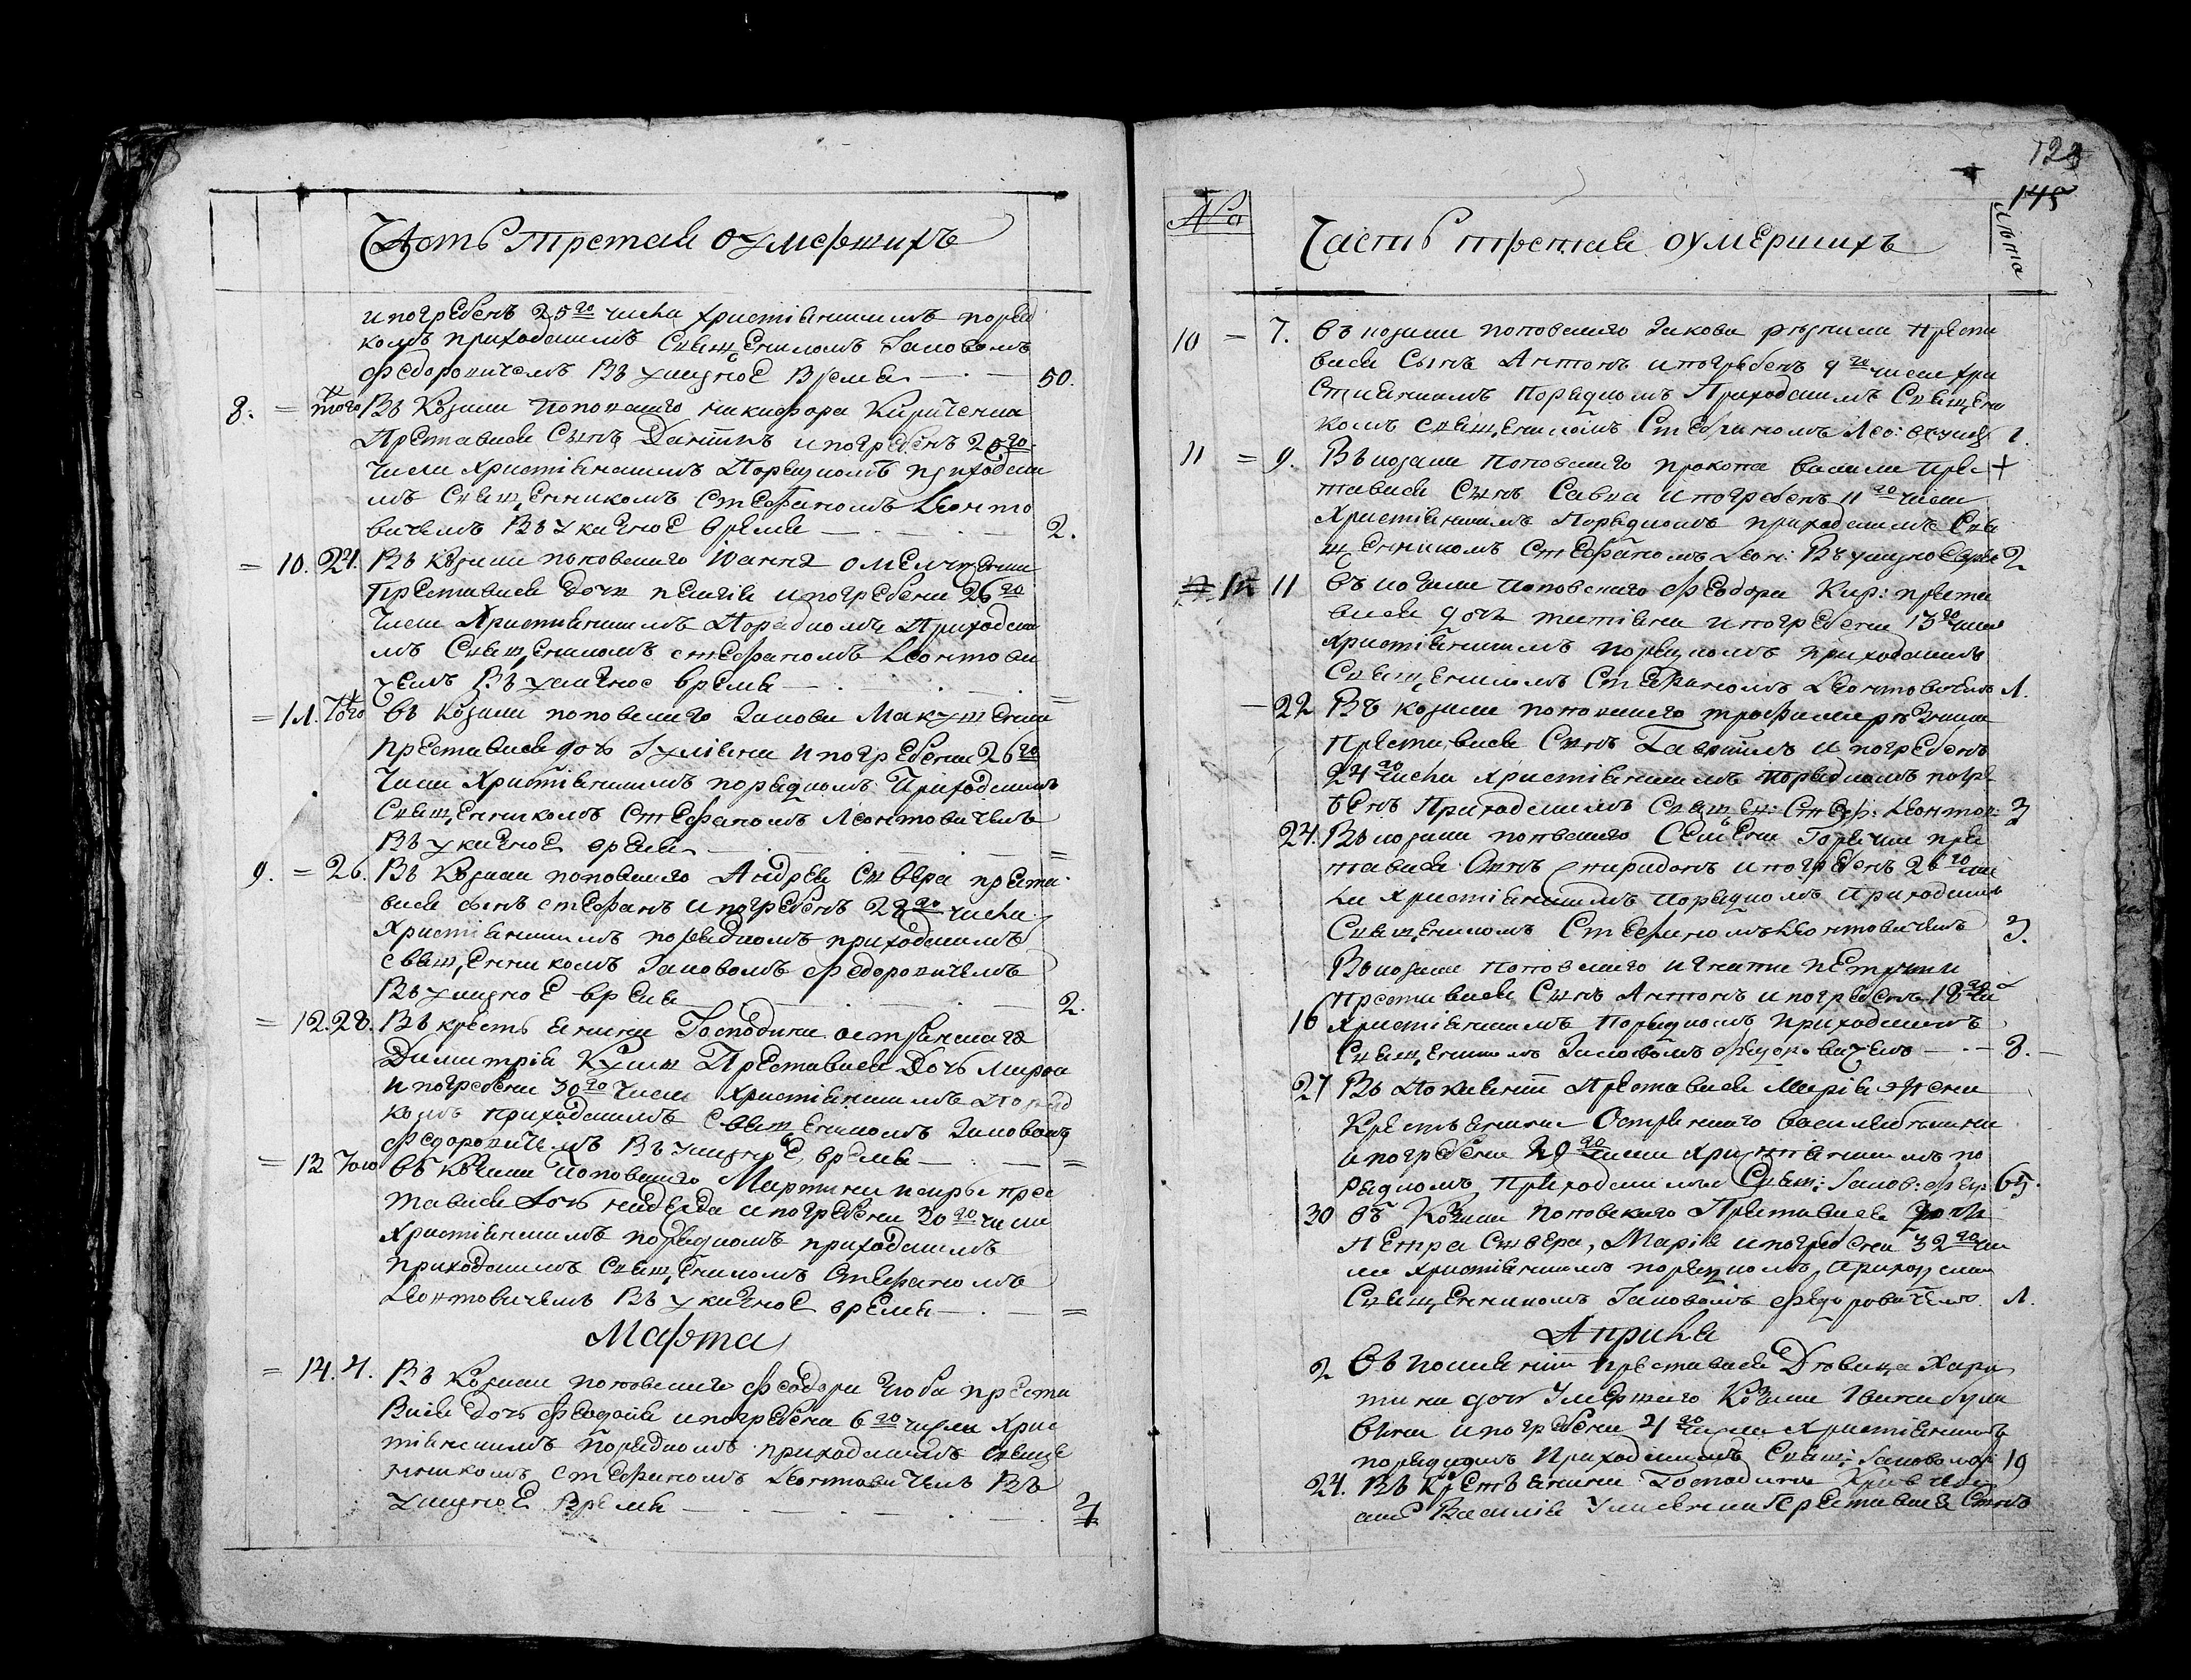 Часть третая оумершихъ
и погребенъ 25го числа христіанскимъ поряд
комъ приходскимъ священикомъ Іаковомъ
Федоровичемъ Въ указное время 50.
8. = того Въ козака поповского никифора Кириченка
Преставися Сынъ Даніилъ и погребенъ 25го
числа христіанскимъ Порядкомъ приходски
мъ священникомъ Стефаномъ Леонто
вичемъ Въ указное время 2.
= 10. 24. Въ козака поповского Іоанна омелченка
Преставися Дочь пелагія и погребена 26го
числа Христіанскимъ Порадкомъ Приходски
мъ Священикомъ стефаномъ Леонтови
чемъ Въ указное время =
= 11. Того въ козака поповского Іакова Макушенка
преставися дочь Іуліяна и погребенна 26го
числа Христіанскимъ порядкомъ Приходскимъ
Священникомъ Стефаномъ Леонтовичемъ
Въ указное время =
9. = 26. Въ Козака поповского Андрея Сквера преста
вися сынъ стефанъ и погребенъ 28го числа
Христіанскимъ порядкомъ приходскимъ
священникомъ Іаковомъ федоровичемъ
Въ указное время 2.
= 12. 28. Въ крестянина Господина острянскаго
Димитрія Преставися Дочь Марфа
и погребена 30го числа Христіанскимъ поряд
комъ приходскимъ священикомъ Іаковомъ
Федоровичемъ Въ указное время =
= 13 Того въ Козака Поповского Мартина прес
тавися дочь надежда и погребена 30го числа
Христіанскимъ порядкомъ приходскимъ
приходскимъ Священикомъ Стефаномъ
Леонтовичемъ Въ указное время =
Марта
= 14. 4. Въ Козака поповского феодора преста
вися дочь феодосія и погребена 6го числа Хрис
тіанскимъ порядкомъ приходскимъ свяще
нникомъ стефаномъ Леонтовичемъ Въ
указное время 4
123
145
№ Часть третая оумершихъ Лѣта
10 = 7. Въ козака поповского Іакова прета
вися Сынъ Антонъ и погребенъ 9го числа хри
стианскимъ Порядкомъ Приходскимъ Священи
комъ священикомъ Стефаномъ Лео: 1.
11 = 9. Въ козака Поповского прокопа прес
тавися Сынъ Савка и погребенъ 11го числа
Христіанскимъ Порядкомъ приходскимъ Свя
щенникомъ Стефаномъ Леон: Въ указное время 2
12 11 въ козака поповского Феодора Кир: преста
вися дочь татіяна и погребена 13го числа
Христіанскимъ порядкомъ приходскимъ
Священикомъ Стефаномъ Леонтовичемъ 1.
22 Въ козака поповского
Преставися Сынъ Гавріилъ и погребенъ
24го числа Христіанскимъ порядкомъ погре
бенъ Приходскимъ Священ: Стеф: Леонтов: 3
24. Въ козака поповского Семена прес
тавися Сынъ спиридонъ и погребенъ 26го чис
ла Христіанскимъ порядкомъ приходскимъ
Священикомъ Стефаномъ Леонтовичемъ 3.
Въ козака поповского игната
16 преставися Сынъ Антонъ и погребенъ 18го чи
Христіанскимъ Порядкомъ приходскимъ
Священикомъ Іаковомъ федоровичемъ 8.
27 Въ Покаяніи Преставися Марія жена
Крестянина Острянского
и погребена 29го числа христіанскимъ по
рядкомъ Приходскимъ Свящ: Іаков: фед: 65.
30 въ Козака поповского Преставися дочь
Петра Сквера, Марія и погребена 32го чис
ла христіанскимъ порядкомъ, приходским
Священникомъ Іаковомъ федоровичемъ. 1.
Априля
2 въ покаяніи преставися Дѣвица Хари
тина дочь Умершаго Козака
и погребена 4го числа Христіанскимъ
порядкомъ Приходскимъ Свящ: Іаковомъ 19
24. Въ Крестянина Господина
Василія преставися Сынъ